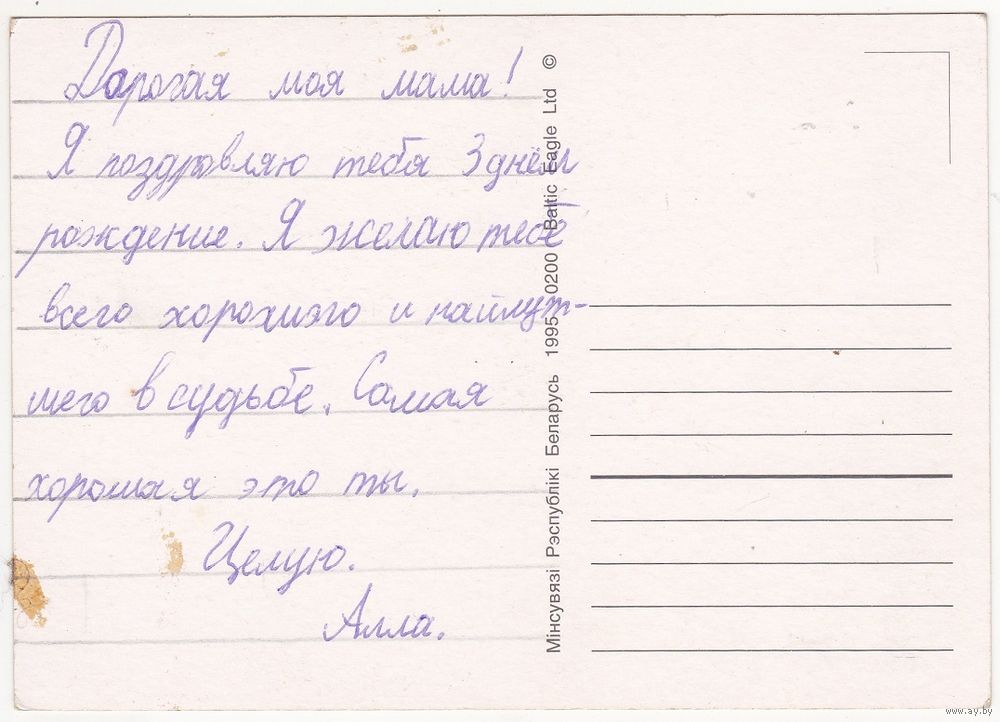 Дорогая моя мама!
Я поздровляю тебя З днём
рождение. Я желаю тебе
всего хорохшэго и найлут-
шего в судьбе. Самая
хорошая это ты.
Целую.
Алла.
Мінсувязі Рэспублікі Беларусь 1995 0200 Baltic Eagle Ltd ©
www.ay.by